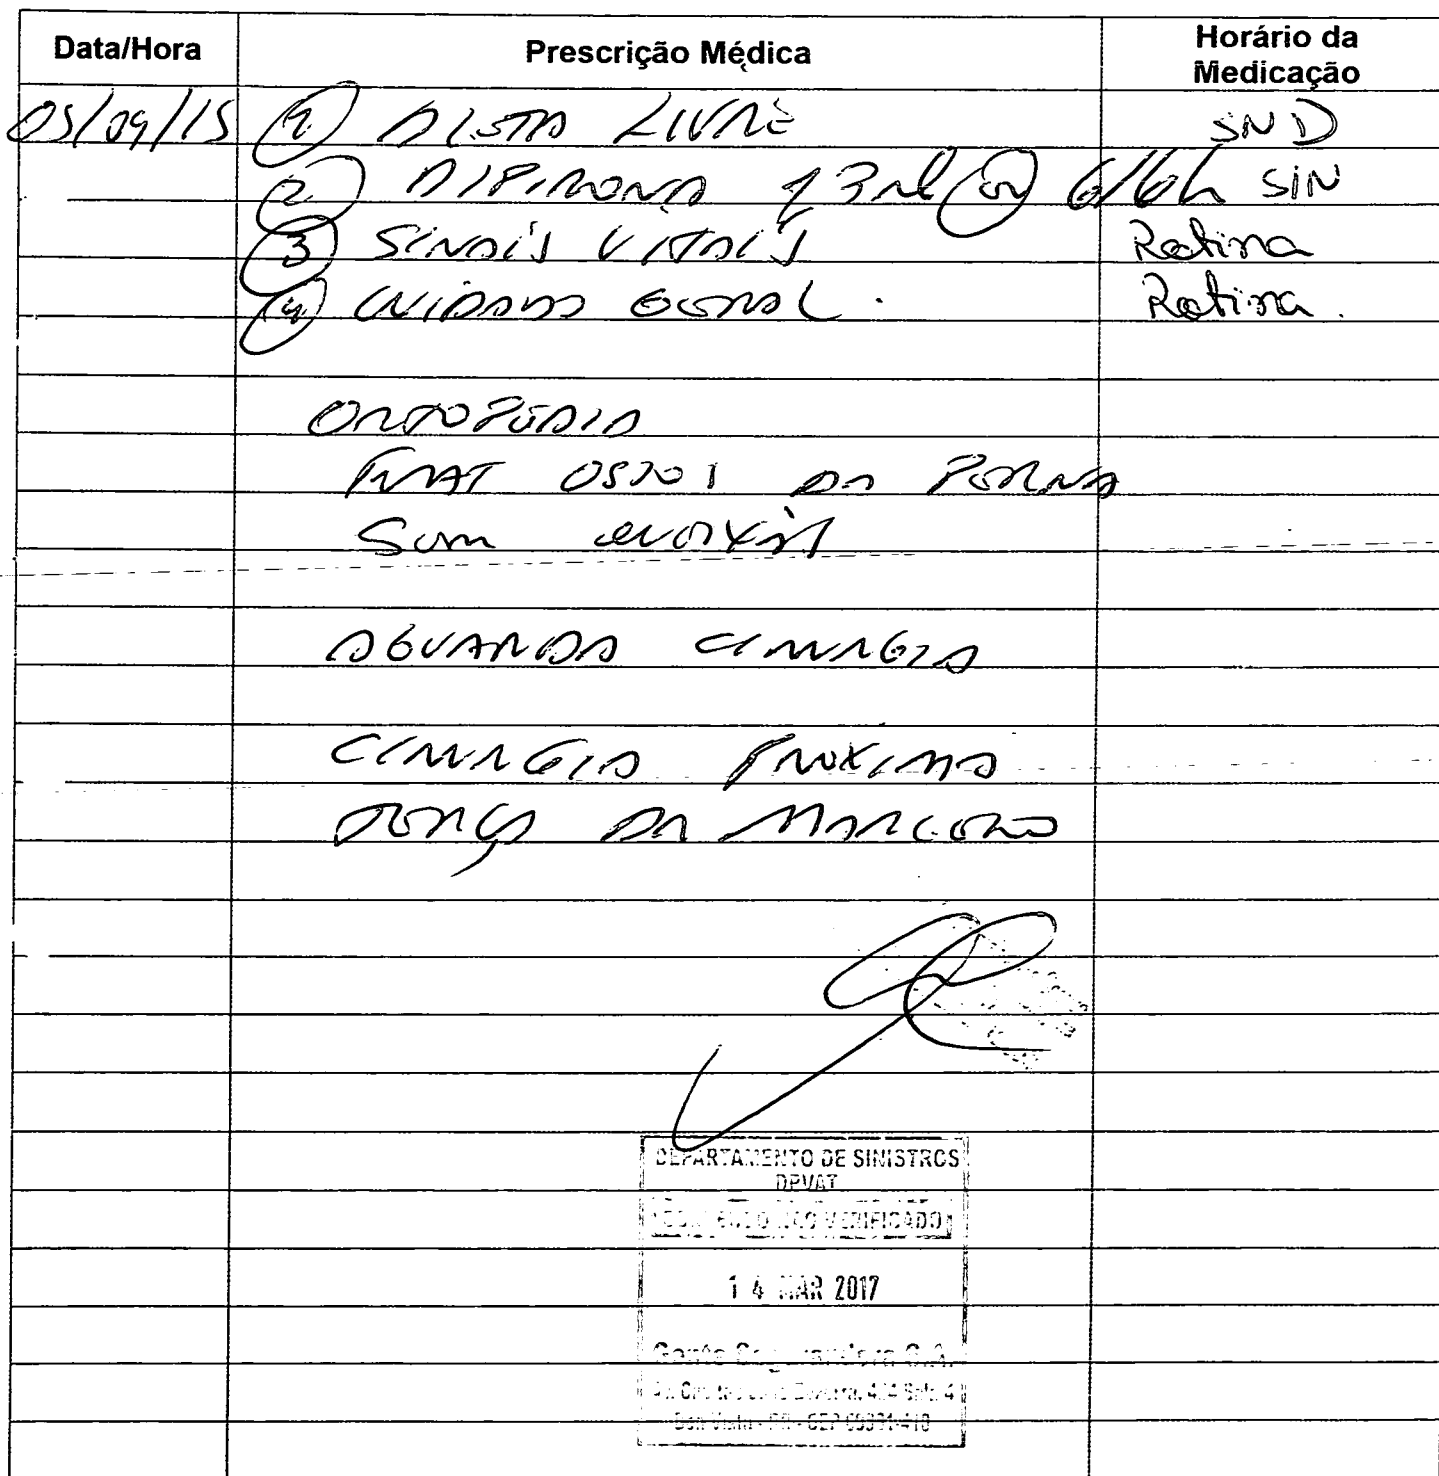 Data/Hora Prescrição Médica Horário da Medicação
05/09/15 1 DIETA LIVRE SND
2 DIPIRONA 13ml EV 6/6h S/N
3 SINAIS VITAIS Rotina
4 CUIDADO GERAL. Rotina.
ORTOPEDIA
FRAT OSSOS DA PERNA
Sem queixas
AGUARDA CIRURGIA
CIRURGIA PROXIMA
TERÇA DR MARCELO
DEPARTAMENTO DE SINISTROS
DPVAT
NÃO VERIFICADO
14 MAR 2017
Gente Seguradora S.A.